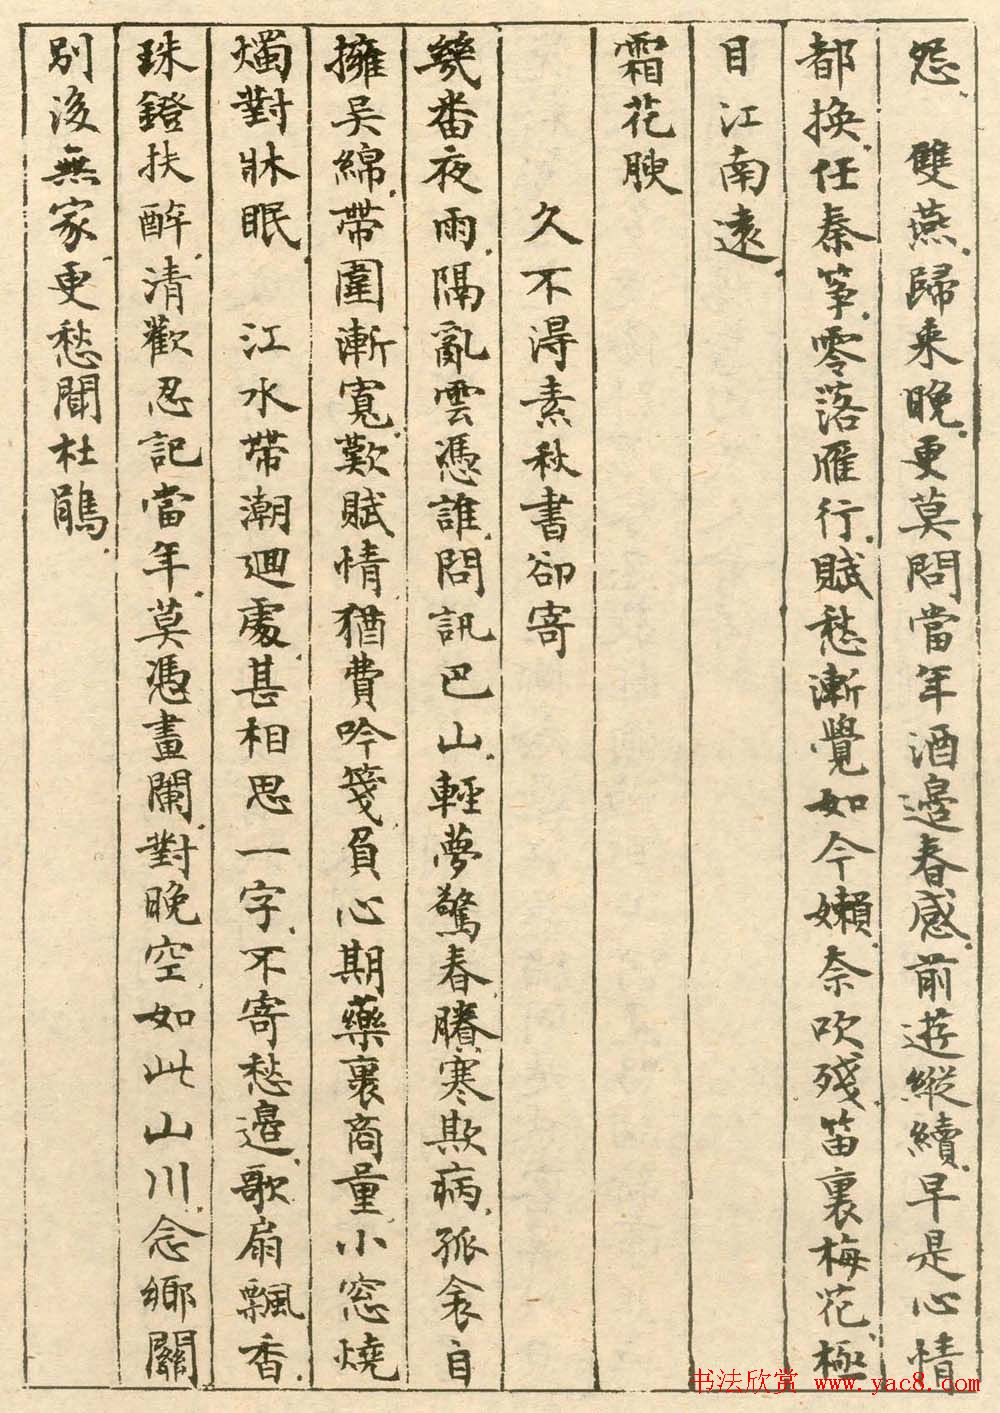 怨　雙燕歸來晚更莫問當年酒邊春感前遊縱續早是心情
都換任秦筝零落雁行賦愁漸覺如今嬾奈吹殘笛裏梅花極
目江南遠
霜花腴
久不得素秋書卻寄
幾番夜雨隔亂雲憑誰問訊巴山輕夢驚春賸寒欺病孤衾自
擁吴綿帶圍漸寬歎賦情猶費吟箋負心期藥裹商量小窓燒
燭對牀眠　江水帶潮迴處甚相思一字不寄愁邊歌扇飄香
珠鐙扶醉清歡忍記當年莫憑畫闌對晚空如此山川念鄉關
別後無家更愁聞杜鵑
书法欣赏 www.yac8.com